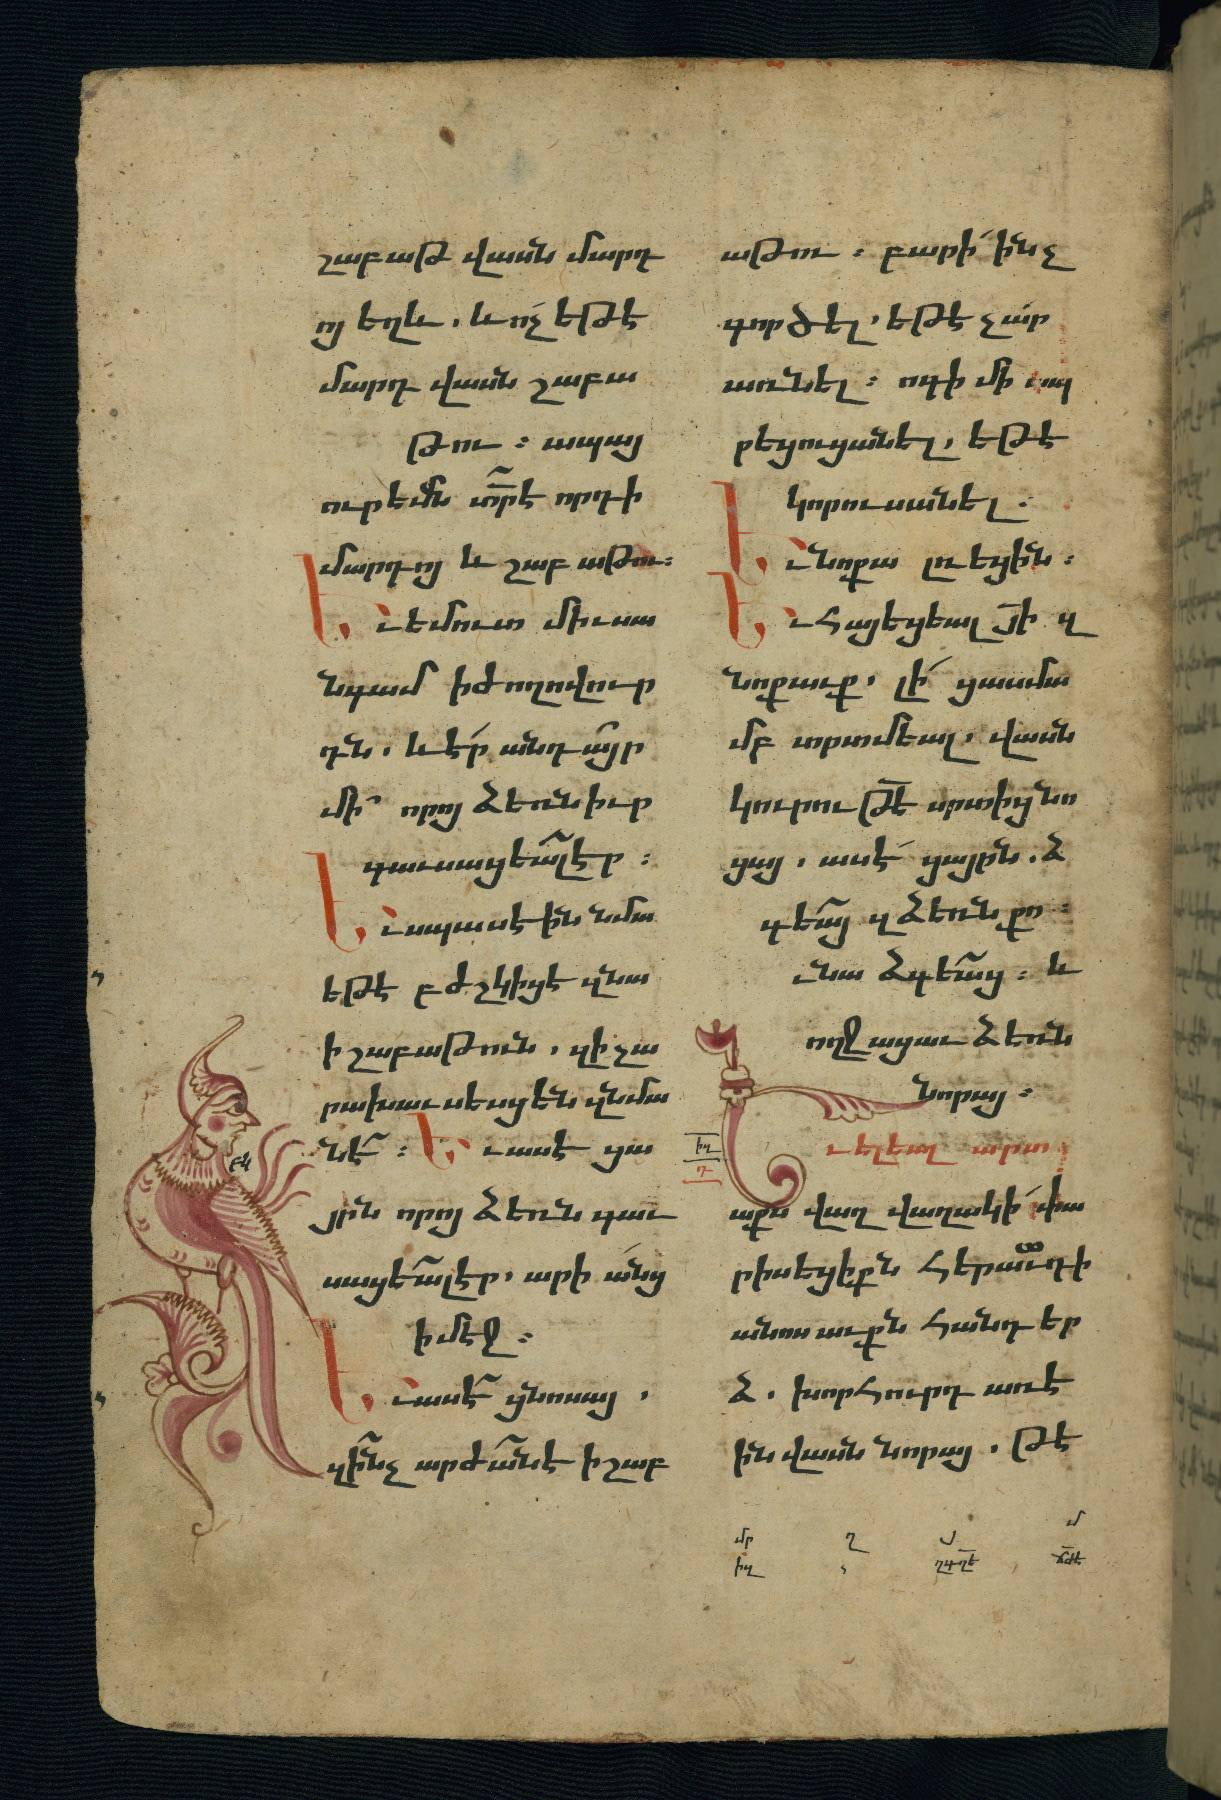 շաբաթ վասն մարդ
ոյ եղև, և ոչ եթէ
մարդ վասն շաբա
թու ։ ապայ
ուրեմն տր̃է որդի
մարդոյ և շաբաթու։
Եւ եմուտ միւսա
նգամ ի ժողովուր
դն, և էր անդ այր
մի՝ որոյ ձեռն իւր
գաւսացեալ էր ։
Եւ սպասէին նմա
եթէ բժշկիցէ զնա
ի շաբաթուն, զի չա
րախաւսեսցեն զնմա
նէ ։ Եւ ասէ ցա
յրն որոյ ձեռն գաւ
սացեալ էր, արի անց
ի մէջ ։
Եւ ասէ ցնոսայ,
զի՞նչ արժանէ ի շաբ
աթու ։ բարի՛ ինչ
գործել, եթէ չար
առնել ։ ոգի մի ապ
րեցուցանել, եթէ
կորուսանել ։
Եւ նոքա լռեցին ։
Եւ հայեցեալ յի̄ զ
նոքաւք, լի՛ ցասմա
մբ տրտմեալ, վասն
կուրութէ̄ սրտից նո
ցայ, ասէ ցայրն. ձ
գեա զձեռն քո ։
ւնա ձգեաց ։ և
ողջացաւ ձեռն
նորայ ։
իզ
Եւ ելեալ արտ
աքս վաղ վաղակի՛ փա
րիսեցիքն հերովդի
անոսաւքն հանդեր
ձ. խորհուրդ առէ
ին վասն նորայ. թէ